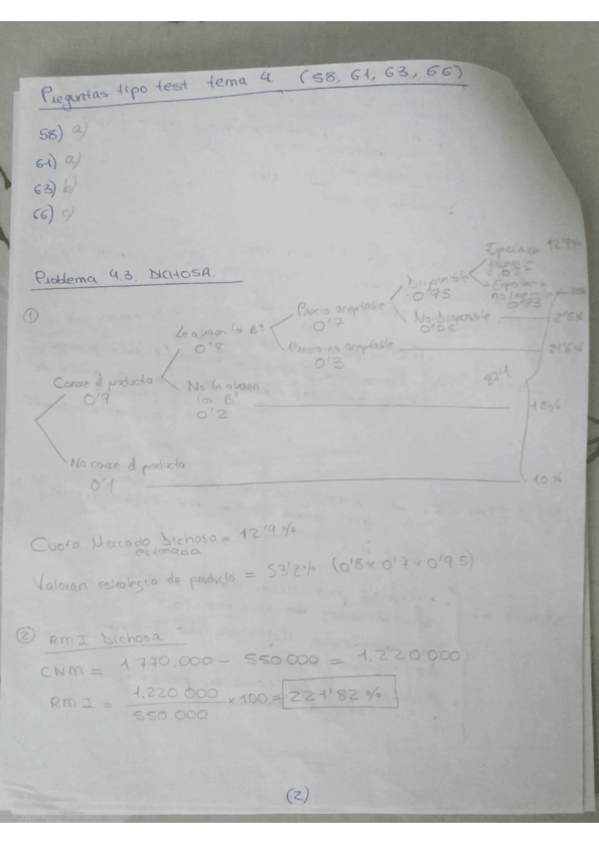 Preguntas tipo test tema 4 (58, 61, 63, 66)
58) a)
61) a)
63) b)
66) c)
Problema 4.3. DICHOSA.
①
Conoce el producto
0'9
Le atraen los Bº
0'8
Precio aceptable
0'7
Disponible
0'95
12'9%
No Disponible
Precio no aceptable
0'3
21'6%
87'1
No le atraen
los Bº
0'2
18%
No conoce el producto
0'1
10%
Cuota Mercado Dichosa = 12'9%
estimada
Valoran estrategia de producto = 53'2% (0'8 x 0'7 x 0'95)
② RMI Dichosa
CNM = 1.770.000 - 550000 = 1.220.000
RMI = 1.220 000 / 550 000 x 100 = 221'82 %
(2)